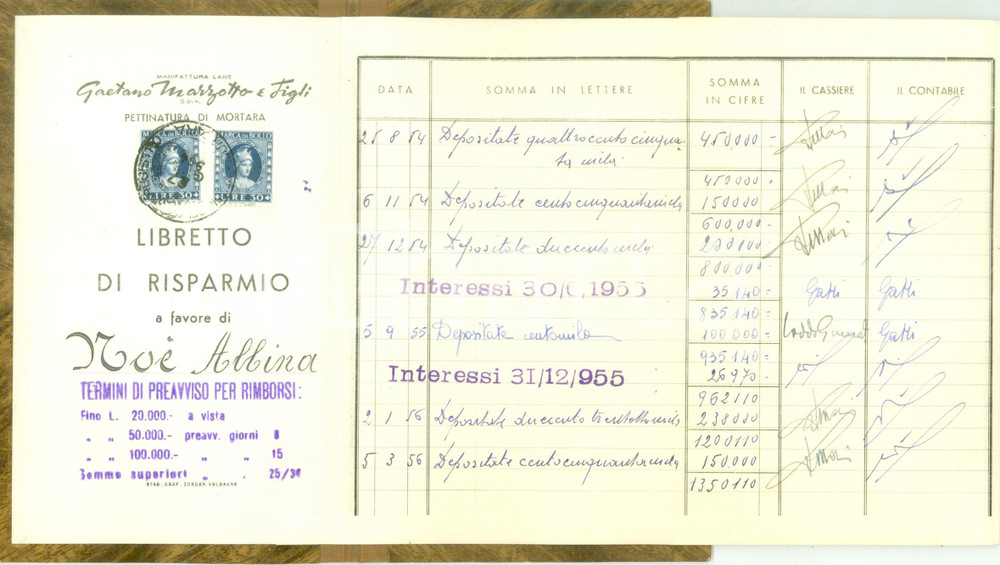 MANIFATTURA LANE
Gaetano Marzotto e Figli
S.p.A.
PETTINATURA DI MORTARA
MARCA DA BOLLO MARCA DA BOLLO
LIRE 30 LIRE 30
LIBRETTO
DI RISPARMIO
a favore di
Noè Albina
TERMINI DI PREAVVISO PER RIMBORSI:
Fino L. 20.000.- a vista
" " 50.000.- preavv. giorni 8
" " 100.000.- " " 15
Somme superiori " " 25/30
STAB. GRAF. ZORDAN VALDAGNO
DATA SOMMA IN LETTERE SOMMA IN CIFRE IL CASSIERE IL CONTABILE
25 8 54 Depositate quattrocentocinquan- 450.000=
ta mila
450.000=
6 11 54 Depositate centocinquantamila 150000
600.000=
27 12 54 Depositate duecentomila 200.000=
800.000=
Interessi 30/6,1955 35140= Gatti Gatti
835140=
5 9 55 Depositate centomila 100000= Gatti
935140=
Interessi 31/12/955 26970=
962110
2 1 56 Depositate duecento trentottomila 238000
1200110
5 3 56 Depositate centocinquantamila 150.000
1350110